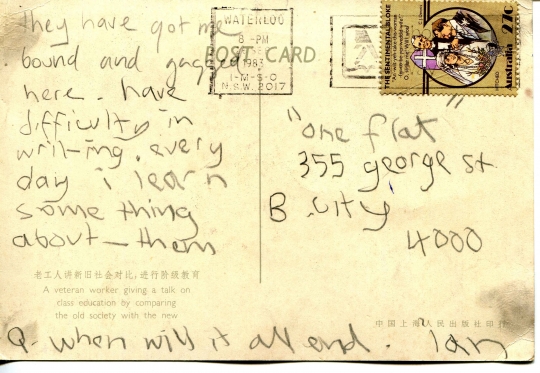 they have got me
bound and gagged
here. have
difficulty in
writing. every
day i learn
some thing
about them
POST CARD
WATERLOO
8 -PM
1983
1-M-S-O
N.S.W. 2017
THE SENTIMENTAL BLOKE
Australia 27c
"one flat"
355 george st
B. city
4000
老工人讲新旧社会对比，进行阶级教育
A veteran worker giving a talk on
class education by comparing
the old society with the new
中国上海人民出版社印行
Q. when will it all end. Ian